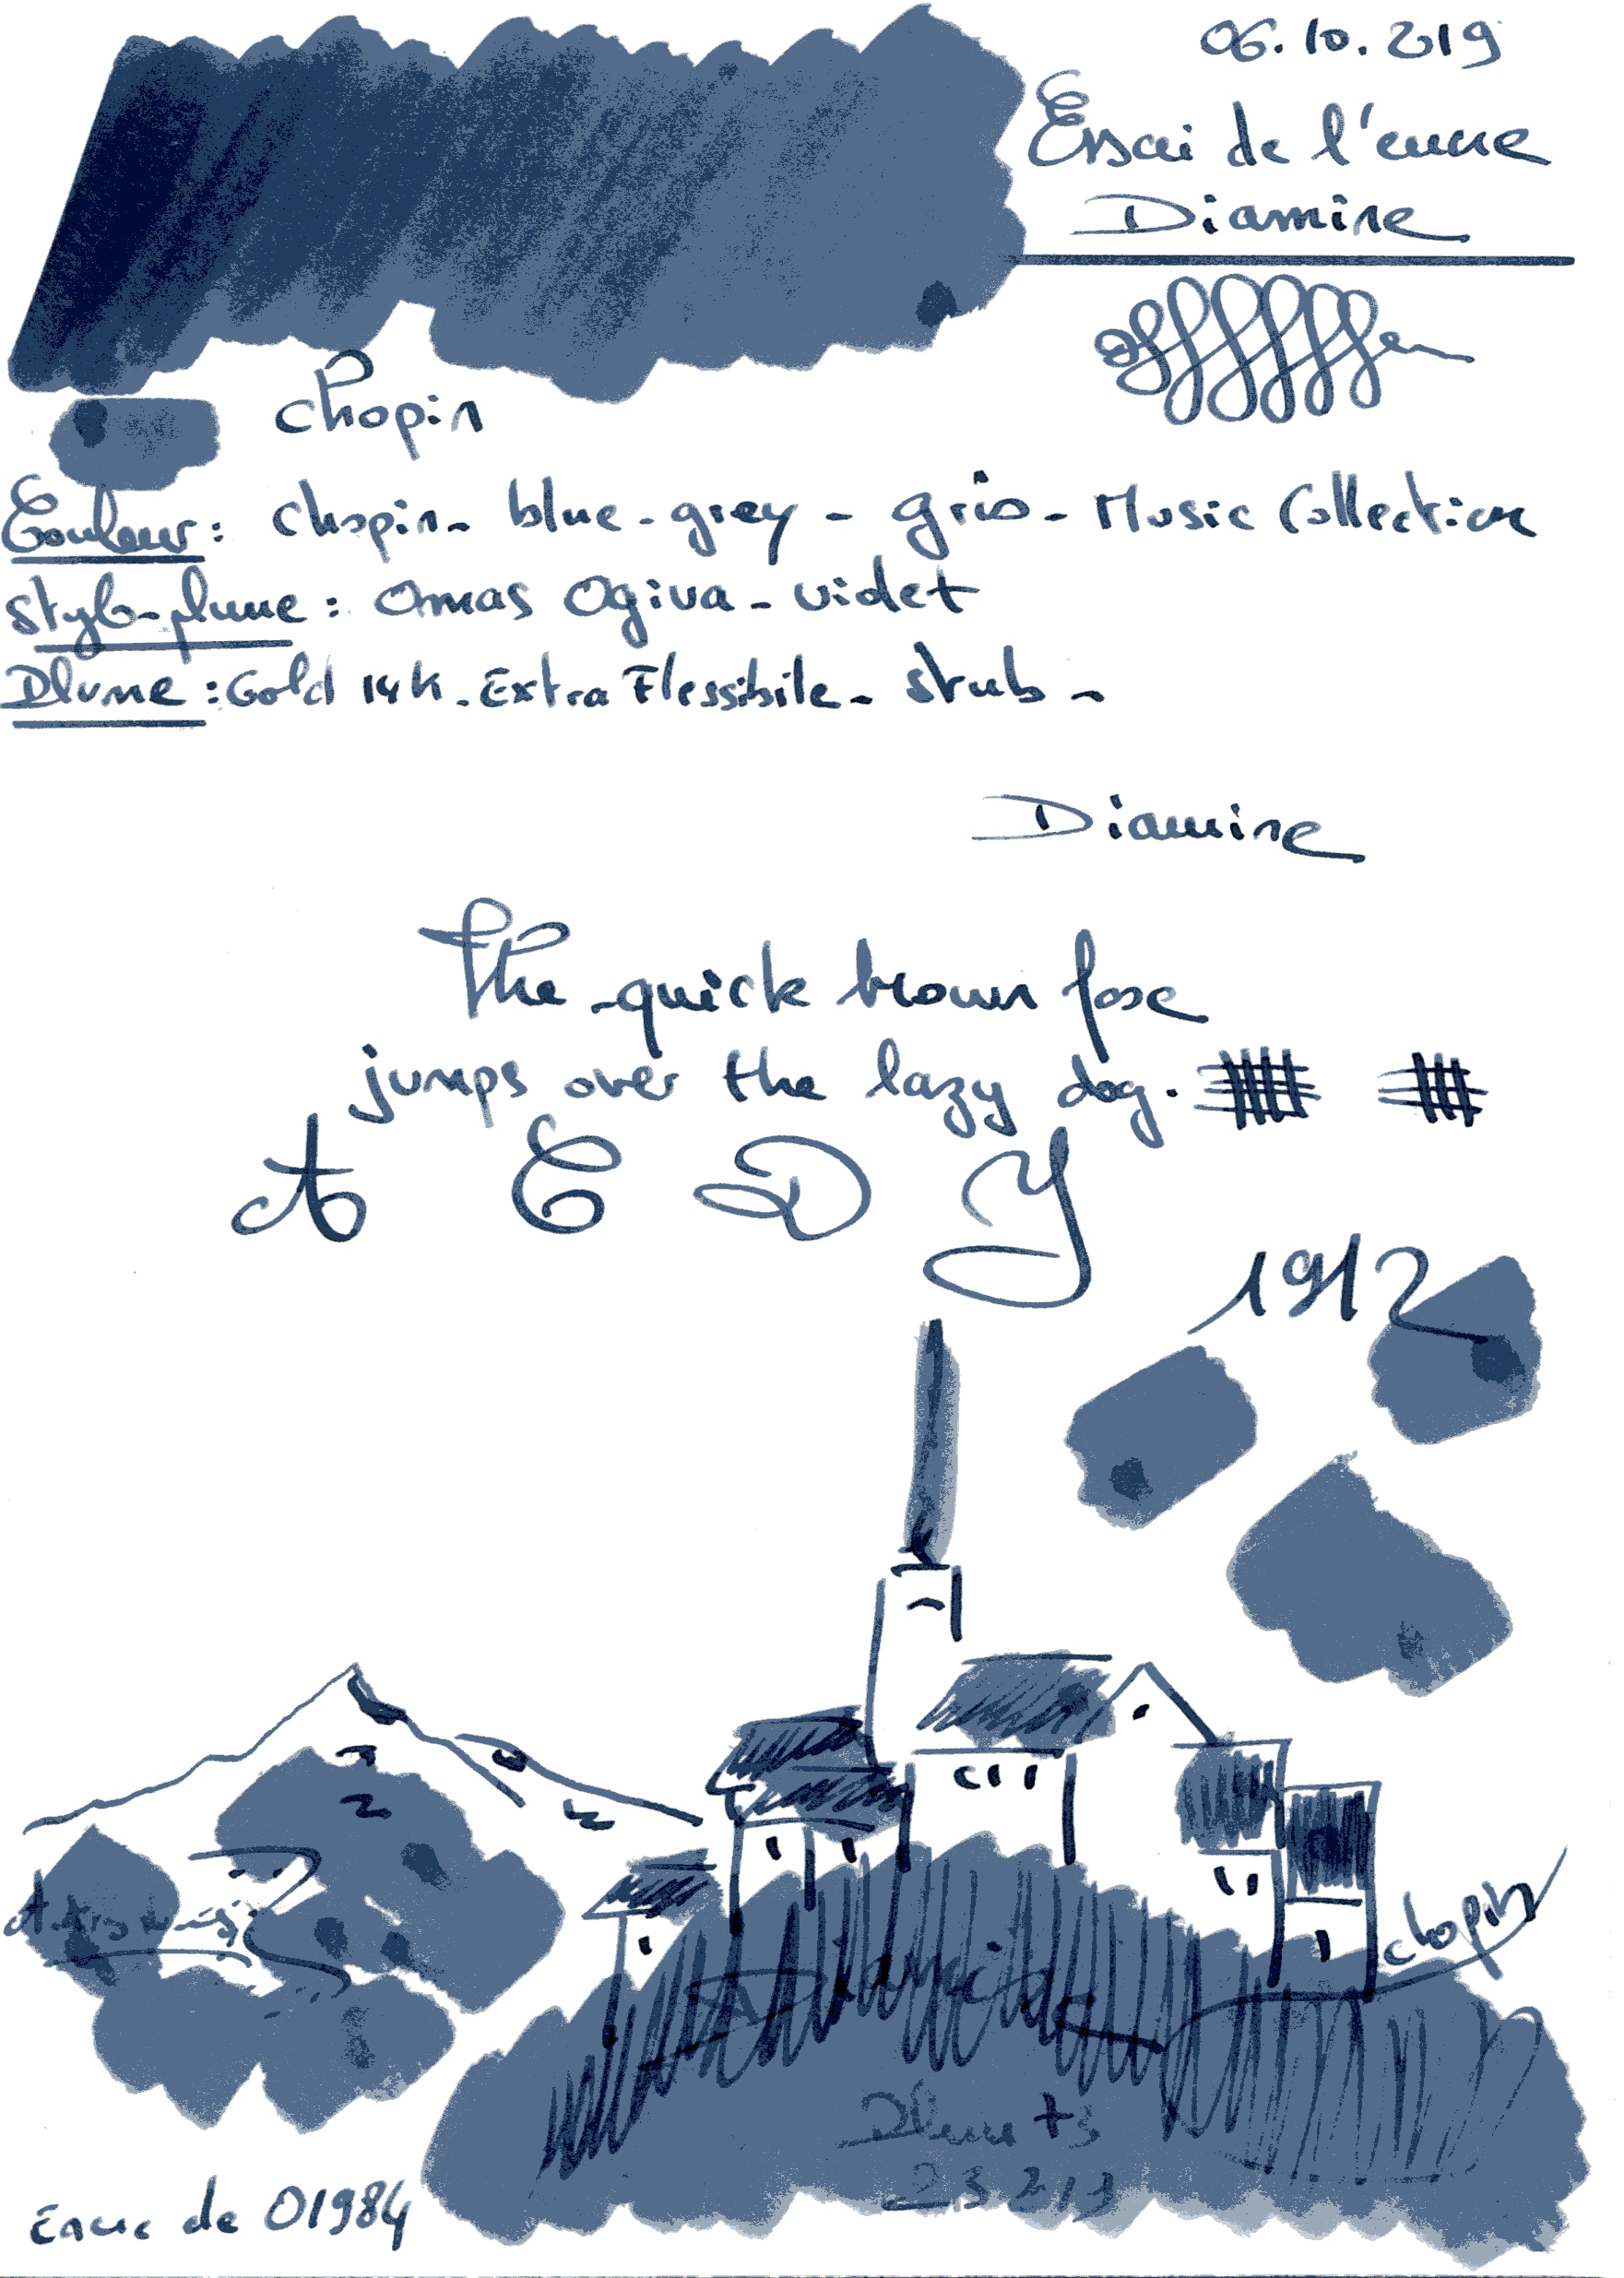 06.10.219
Essai de l'encre
Diamine
Chopin
Couleur : Chopin - blue-grey - gris - Music Collection
Stylo-plume : Omas Ogiva - videt
Plume : Gold 14K - Extra Flessibile - stub -
Diamine
The quick brown fox
jumps over the lazy dog.
A E D Y
1912
Chopin
Diamine
23 213
Encre de 01984